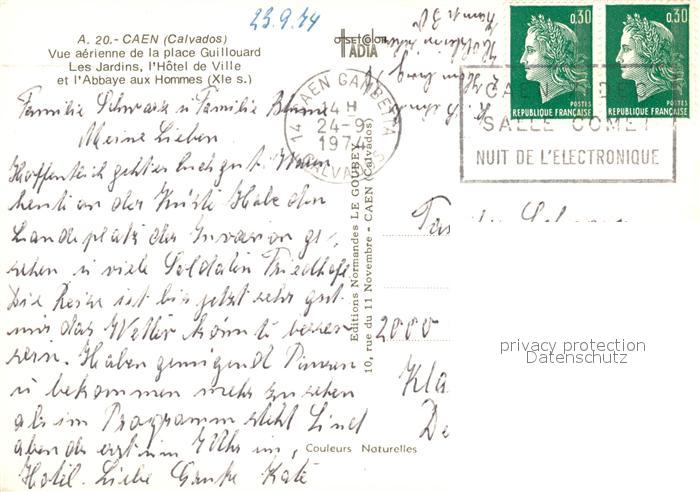 23.9.74
A. 20.- CAEN (Calvados)
Vue aérienne de la place Guillouard
Les Jardins, l'Hôtel de Ville
et l'Abbaye aux Hommes (XIe s.)
OFFSET COLOR
IADIA
0.30
0.30
POSTES
REPUBLIQUE FRANÇAISE
POSTES
REPUBLIQUE FRANÇAISE
14 CAEN GAMBETTA
14 H
24-9
1974
CALVADOS
CAEN
SALLE COMET
NUIT DE L'ELECTRONIQUE
Familie Schwarz u Familie Blume
Meine Lieben
Hoffentlich geht es Euch gut. Waren
heut an der Küste Habe den
Landeplatz der Invasion ge-
sehen u viele Soldaten Friedhöfe
Die Reise ist bis jetzt sehr gut
nur das Wetter könnte besser
sein. Haben genügend Pausen
u bekommen mehr zu sehen
als im Programm steht Sind
abends erst um Uhr im
Hotel. Liebe Grüße Käte
Editions Normandes LE GOUBEY
10, rue du 11 Novembre - CAEN (Calvados)
2000
Kla
De
Couleurs Naturelles
privacy protection
Datenschutz